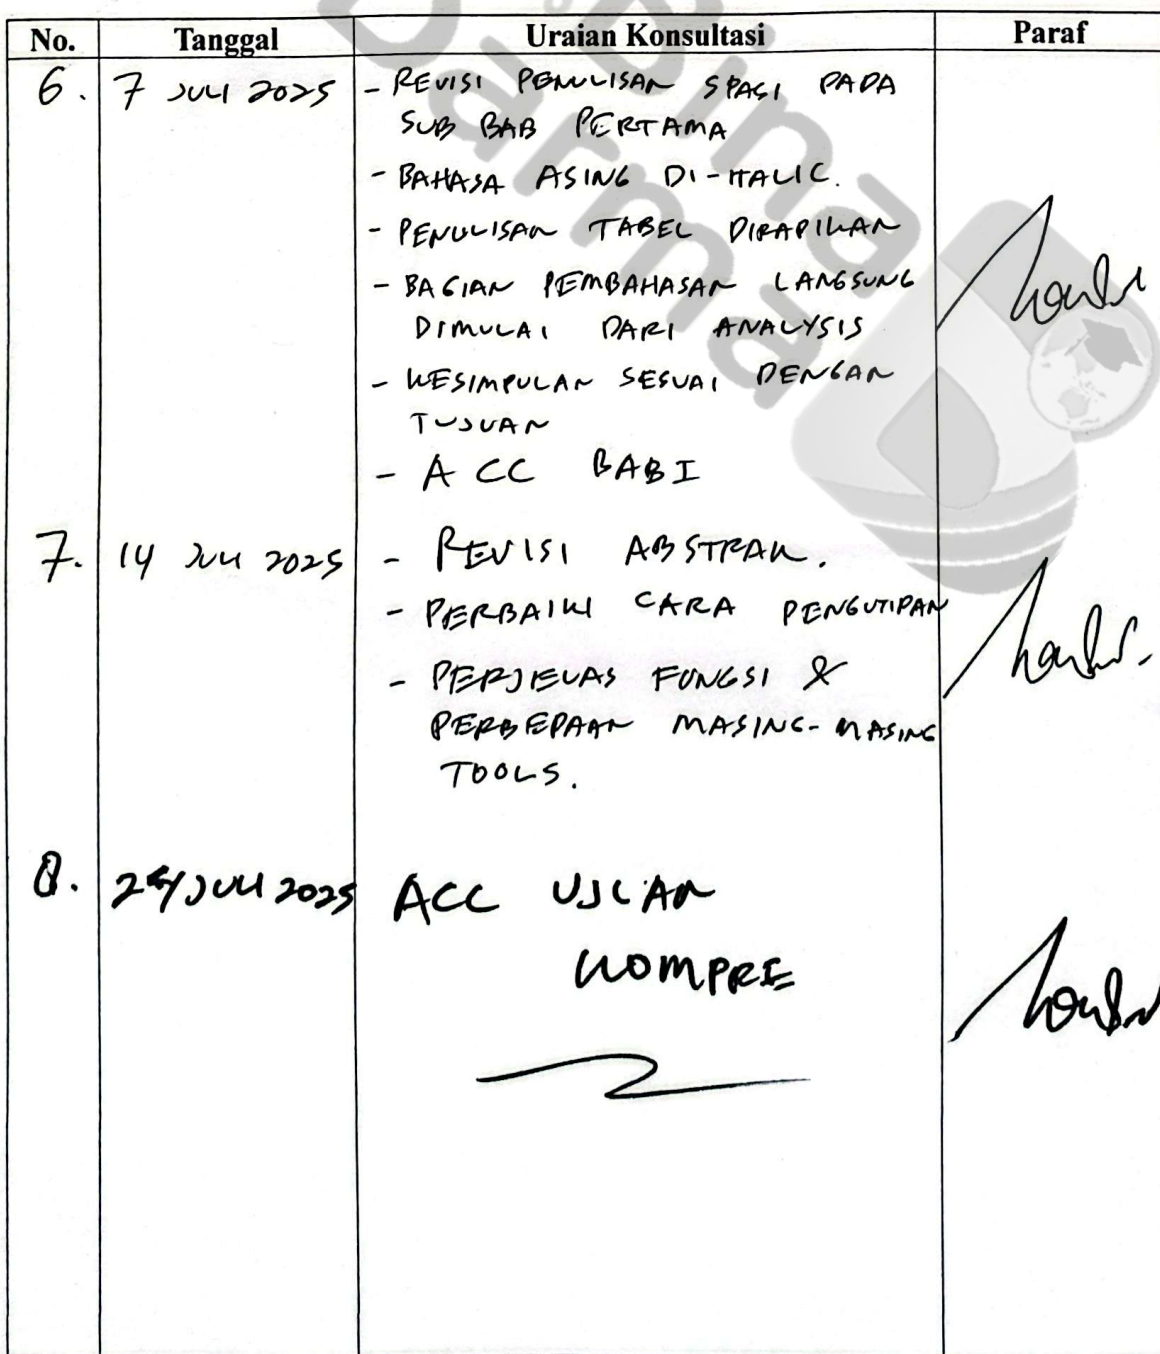 Bina
Darma
No. Tanggal Uraian Konsultasi Paraf
6. 7 JULI 2025 - REVISI PENULISAN SPASI PADA
SUB BAB PERTAMA
- BAHASA ASING DI-ITALIC.
- PENULISAN TABEL DIRAPIKAN
- BAGIAN PEMBAHASAN LANGSUNG
DIMULAI DARI ANALYSIS
- KESIMPULAN SESUAI DENGAN
TUJUAN
- ACC BAB I
7. 14 JULI 2025 - REVISI ABSTRAK.
- PERBAIKI CARA PENGUTIPAN
- PERJELAS FUNGSI &
PERBEDAAN MASING-MASING
TOOLS.
8. JULI 2025 ACC UJIAN
KOMPRE